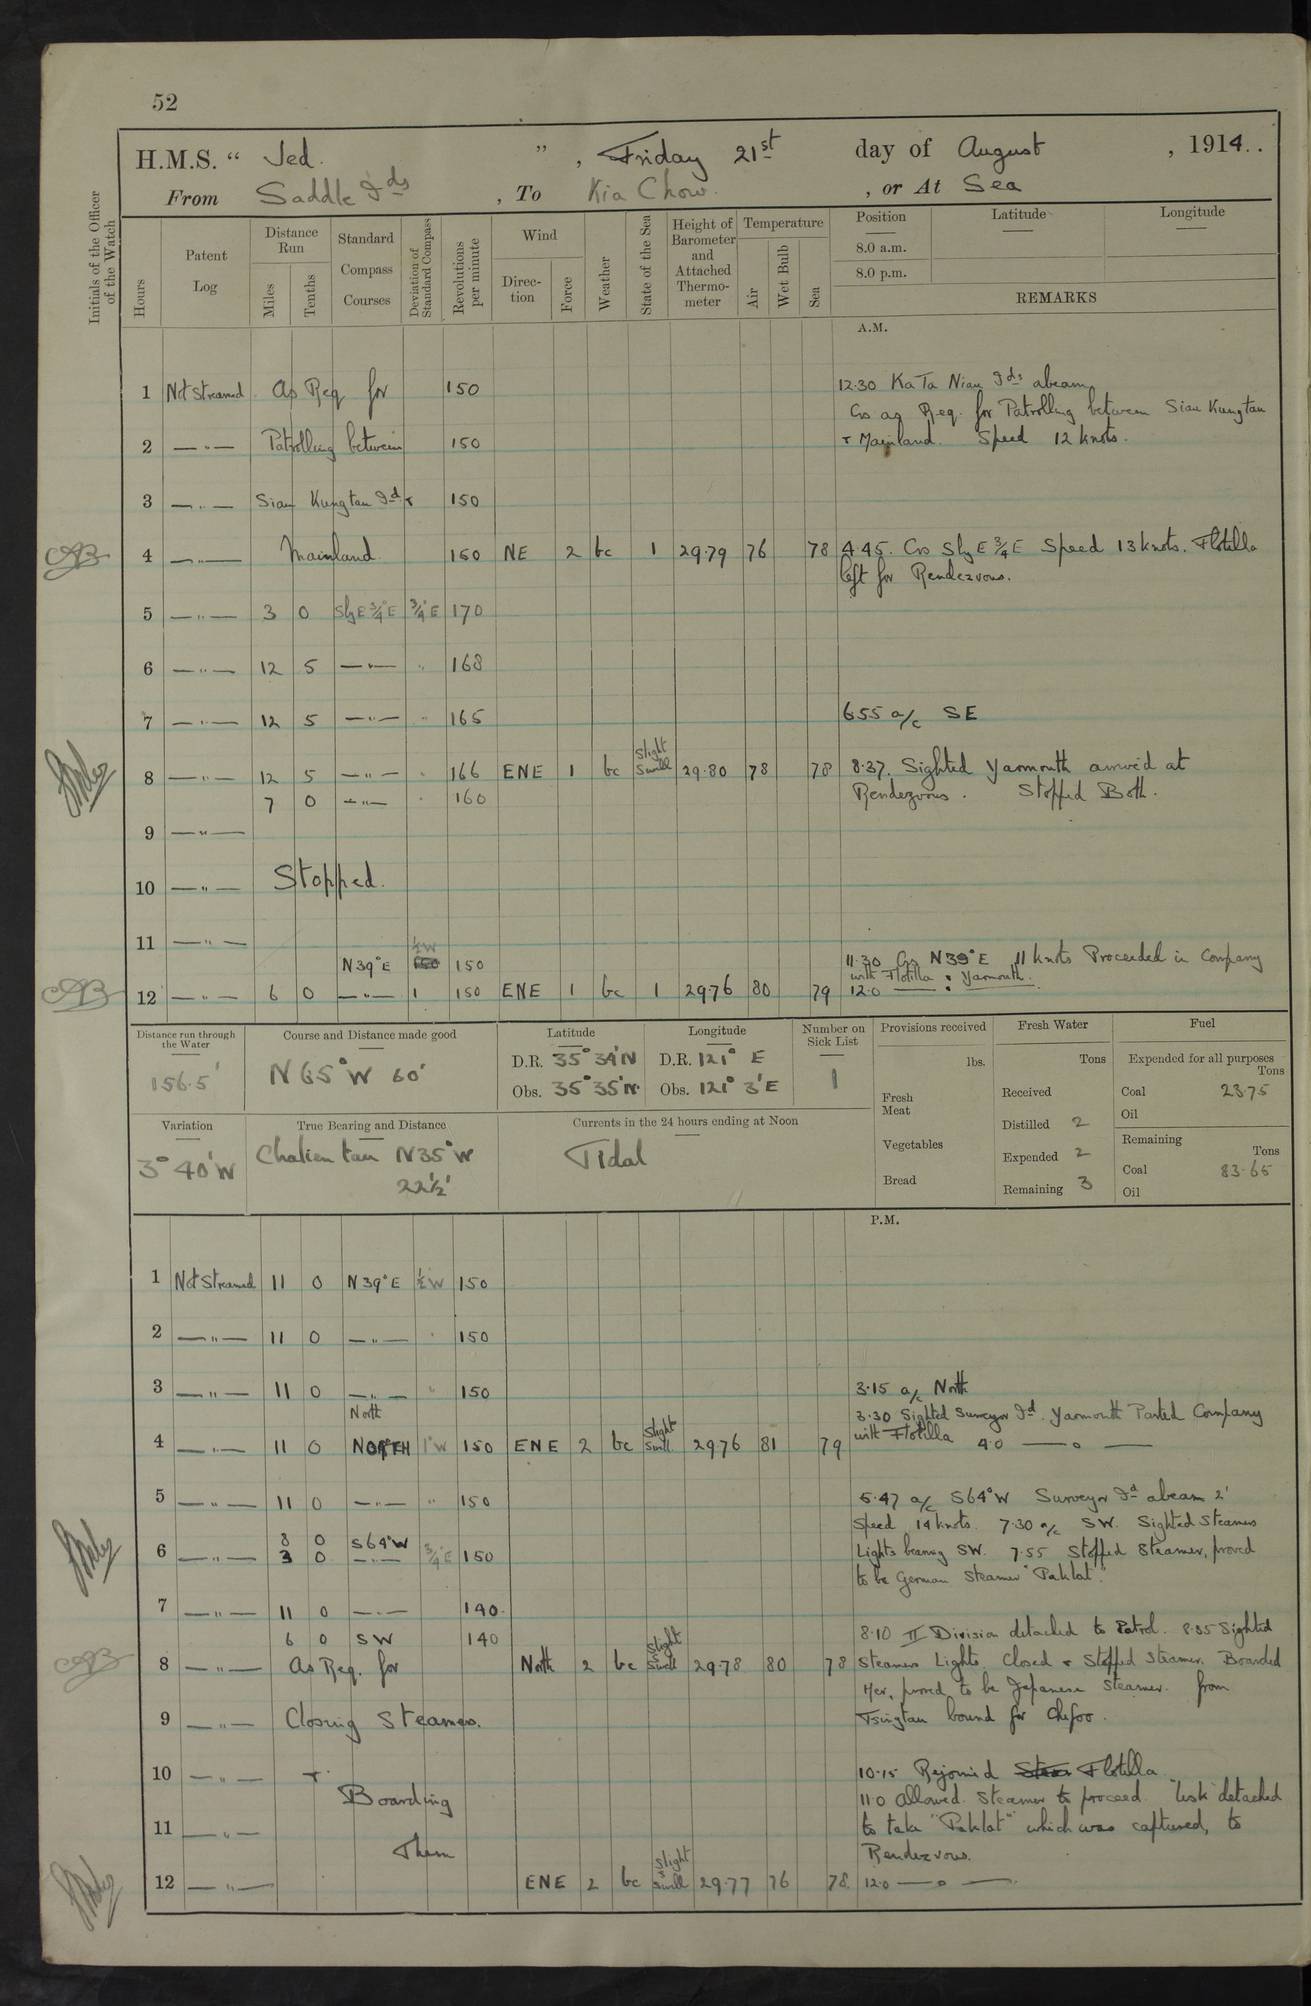 52
H.M.S. “ Jed. ” , Friday 21st day of August , 1914..
From Saddle Ids , To Kia Chow. , or At Sea
Initials of the Officer of the Watch
Hours
Patent Log
Distance Run
Miles
Tenths
Standard Compass Courses
Deviation of Standard Compass
Revolutions per minute
Wind
Direction
Force
Weather
State of the Sea
Height of Barometer and Attached Thermometer
Temperature
Air
Wet Bulb
Sea
Position Latitude Longitude
8.0 a.m.
8.0 p.m.
REMARKS
A.M.
1 Not Streamed As Req for 150 12.30 Ka Ta Niau Ids abeam
Cos as Req. for Patrolling between Siau Kungtau
2 —"— Patrolling between 150 & Mainland. Speed 12 knots.
3 —"— Siau Kungtau Id & 150
4 —"— Mainland 150 NE 2 bc 1 29.79 76 78 4.45. Cos SbyE ¾ E Speed 13 knots. Flotilla
left for Rendezvous.
5 —"— 3 0 SbyE ¾° E ¾° E 170
6 —"— 12 5 —"— " 168
7 —"— 12 5 —"— " 165 6.55 a/c SE
8 —"— 12 5 —"— " 166 ENE 1 bc Slight Swell 29.80 78 78 8.37. Sighted Yarmouth arrived at
7 0 —"— " 160 Rendezvous. Stopped Both.
9 —"—
10 —"— Stopped.
11 —"—
N39°E ½W 150 11.30 Cos N39°E 11 knots Proceeded in Company
with Flotilla & Yarmouth.
12 —"— 6 0 —"— 1 150 ENE 1 bc 1 29.76 80 79 12.0 — " —
Distance run through the Water
156.5'
Course and Distance made good
N 65° W 60'
Latitude
D.R. 35° 34' N
Obs. 35° 35' N
Longitude
D.R. 121° E
Obs. 121° 3' E
Number on Sick List
1
Provisions received
lbs.
Fresh Meat
Vegetables
Bread
Fresh Water
Tons
Received
Distilled 2
Expended 2
Remaining 3
Fuel
Expended for all purposes
Tons
Coal 23.75
Oil
Remaining
Tons
Coal 83.65
Oil
Variation
3° 40' W
True Bearing and Distance
Chalien tau N35°W
22½'
Currents in the 24 hours ending at Noon
Tidal
P.M.
1 Not Streamed 11 0 N39°E ½W 150
2 —"— 11 0 —"— " 150
3 —"— 11 0 —"— " 150 3.15 a/c North
North 3.30 Sighted Surveyor Id. Yarmouth Parted Company
with Flotilla 4.0 — " —
4 —"— 11 0 NORTH 1°W 150 ENE 2 bc Slight Swell 29.76 81 79
5 —"— 11 0 —"— " 150 5.47 a/c S64°W Surveyor Id abeam 2'
8 0 S64°W Speed 14 knots. 7.30 a/c SW. Sighted Steamers
6 —"— 3 0 —"— ¾°E 150 Lights bearing SW. 7.55 Stopped Steamer, proved
to be German Steamer "Paklat".
7 —"— 11 0 —"— 140
6 0 SW 140 8.10 II Division detached to Patrol. 8.35 Sighted
8 —"— As Req. for North 2 bc Slight Swell 29.78 80 78 Steamers Lights Closed & Stopped Steamer. Boarded
Her, proved to be Japanese Steamer. from
9 —"— Closing Steamers. Tsingtau bound for Chefoo.
10 —"— & 10.15 Rejoined Flotilla
Boarding 11.0 Allowed Steamer to proceed. "Usk" detached
11 —"— to take "Paklat" which was captured, to
Them Rendezvous.
12 —"— ENE 2 bc Slight Swell 29.77 76 78 12.0 — " —